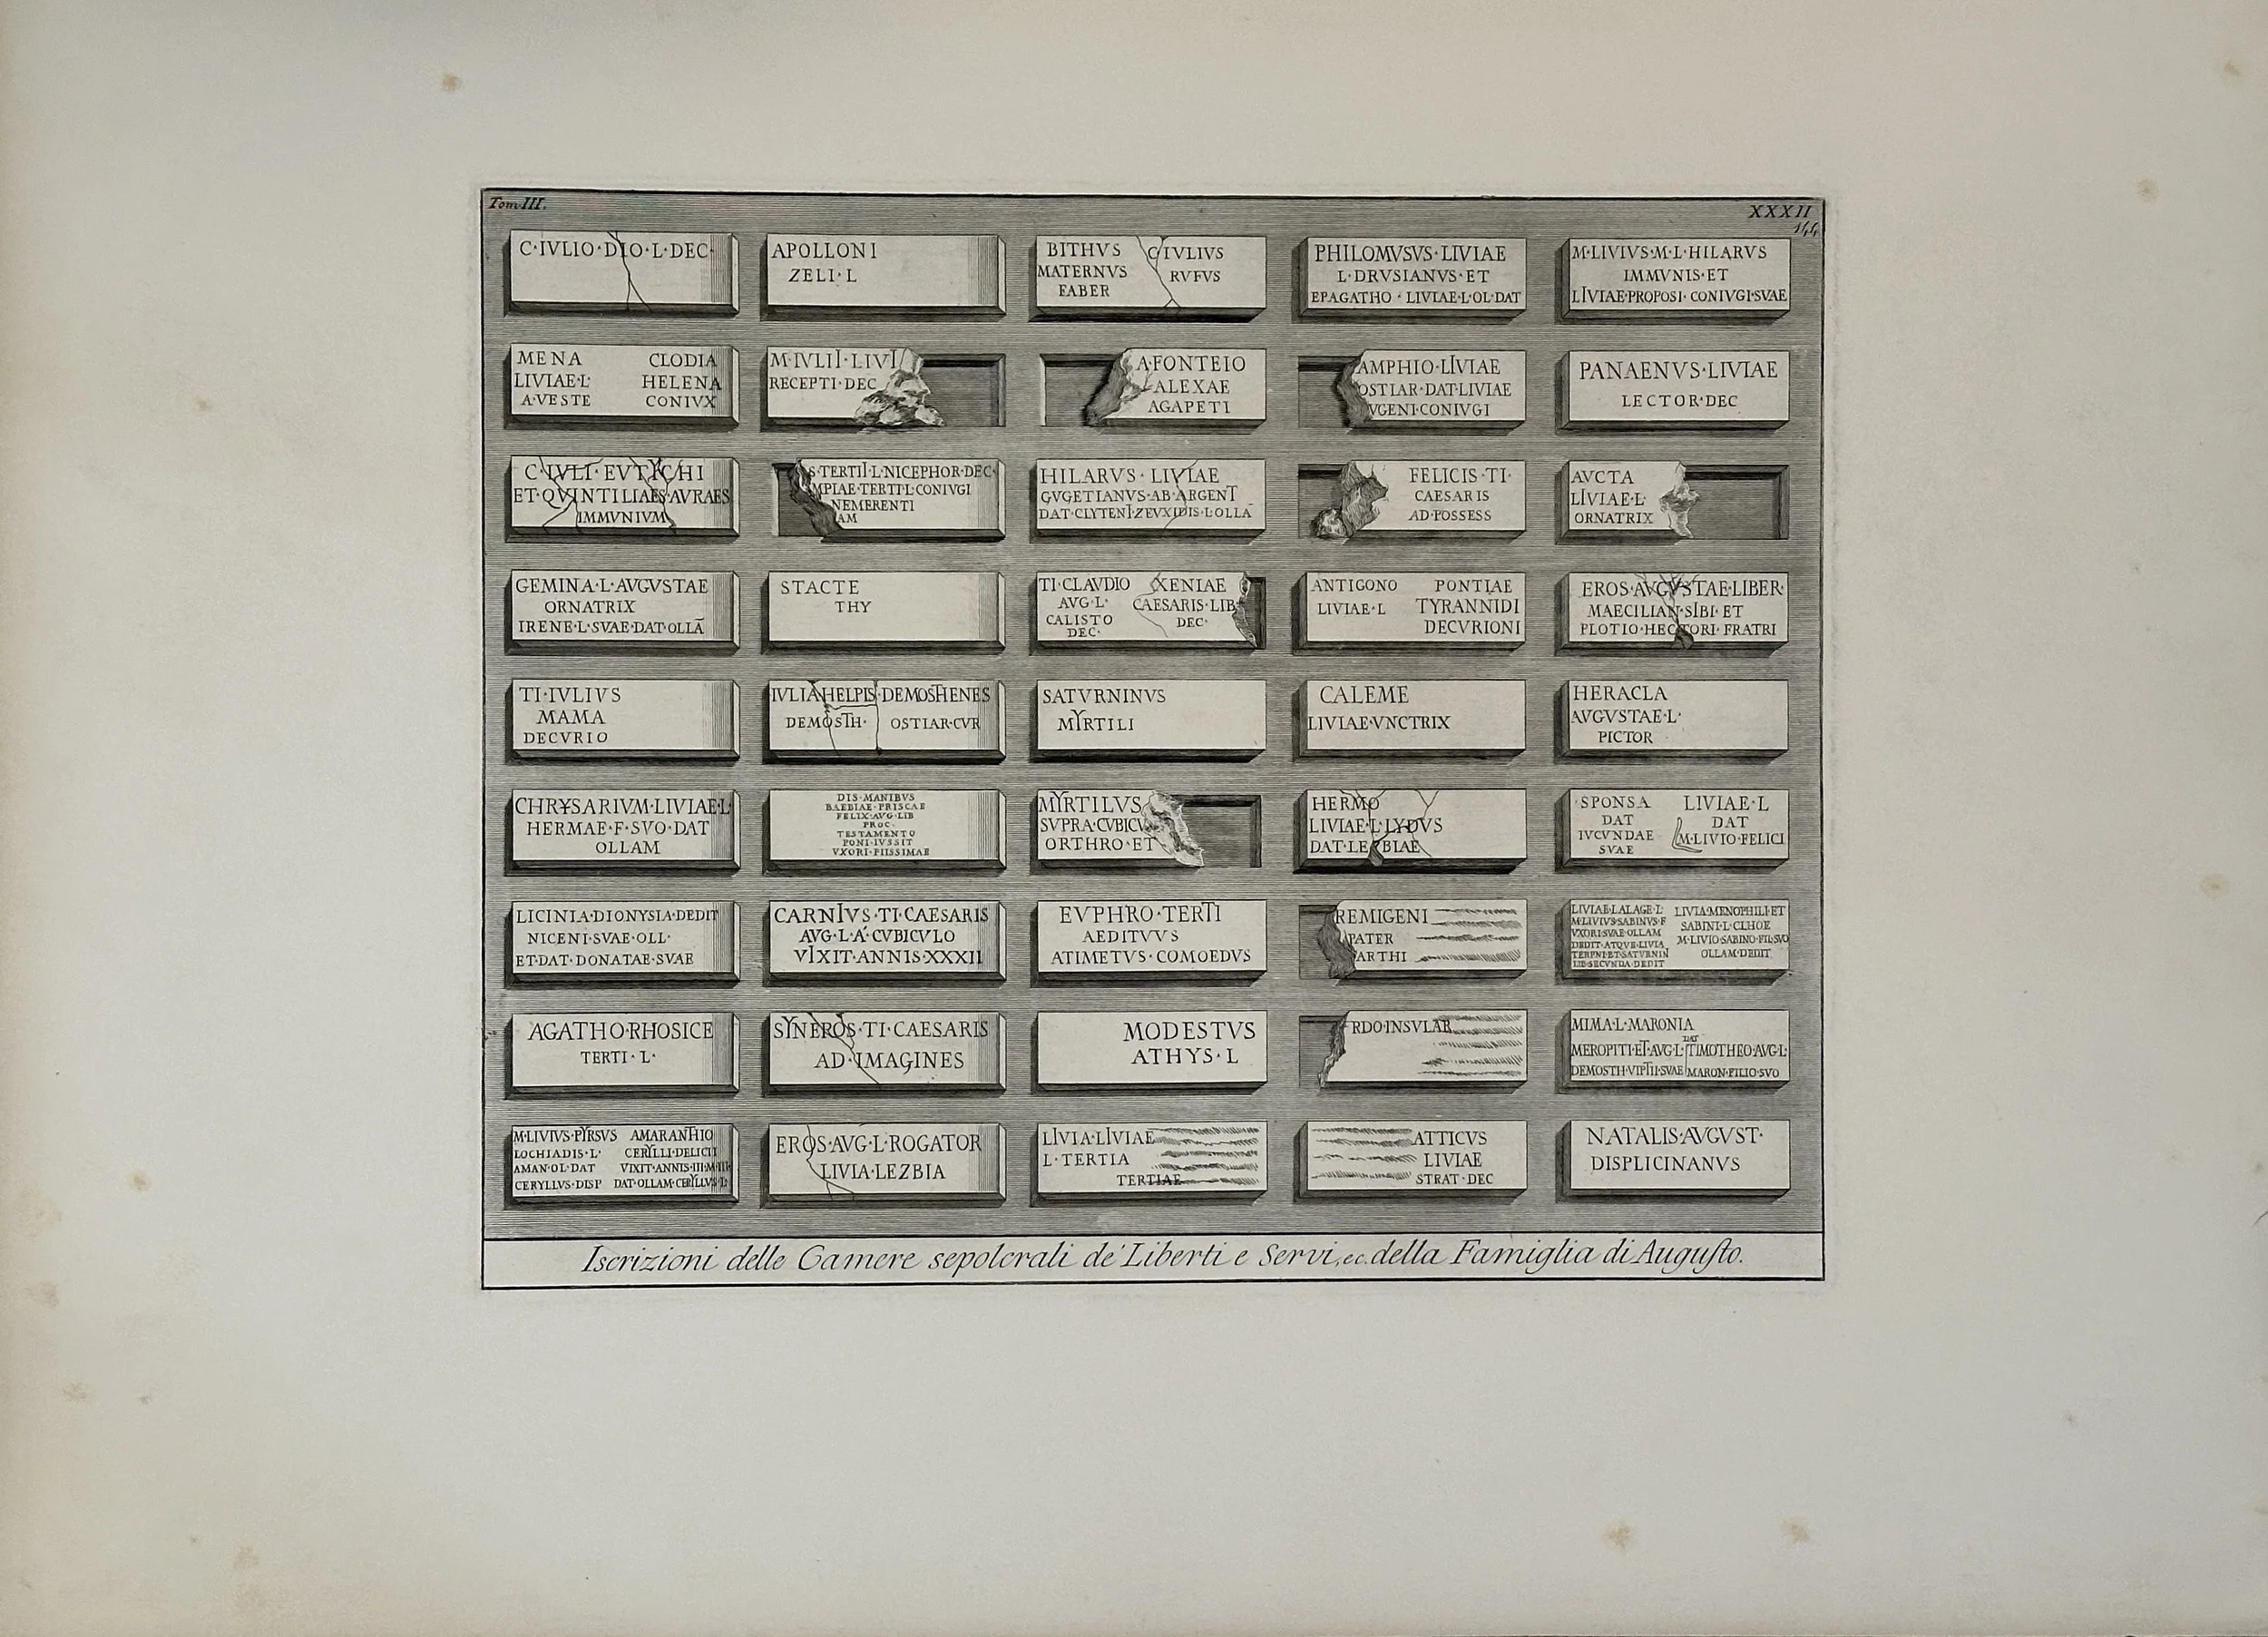 Tom III.
XXXII
144
C·IVLIO·DIO·L·DEC·
APOLLONI
ZELI·L
BITHVS
MATERNVS
FABER
C·IVLIVS
RVFVS
PHILOMVSVS·LIVIAE
L·DRVSIANVS·ET
EPAGATHO·LIVIAE·L·OL·DAT
M·LIVIVS·M·L·HILARVS
IMMVNIS·ET
LIVIAE·PROPOSI·CONIVGI·SVAE
MENA
LIVIAE·L·
A·VESTE
CLODIA
HELENA
CONIVX
M·IVLII·LIVI
RECEPTI·DEC
A·FONTEIO
ALEXAE
AGAPETI
AMPHIO·LIVIAE
OSTIAR·DAT·LIVIAE
VGENI·CONIVGI
PANAENVS·LIVIAE
LECTOR·DEC
C·IVLI·EVTYCHI
ET·QVINTILIAES·AVRAES
IMMVNIVM
S·TERTII·L·NICEPHOR·DEC·
MPIAE·TERTI·L·CONIVGI
NEMERENTI
AM
HILARVS·LIVIAE
GVGETIANVS·AB·ARGENT
DAT·CLYTENI·ZEVXIDIS·L·OLLA
FELICIS·TI·
CAESARIS
AD·POSSESS
AVCTA
LIVIAE·L·
ORNATRIX
GEMINA·L·AVGVSTAE
ORNATRIX
IRENE·L·SVAE·DAT·OLLÃ
STACTE
THY
TI·CLAVDIO
AVG·L·
CALISTO
DEC·
XENIAE
CAESARIS·LIB
DEC·
ANTIGONO
LIVIAE·L
PONTIAE
TYRANNIDI
DECVRIONI
EROS·AVGVSTAE·LIBER·
MAECILIAN·SIBI·ET
PLOTIO·HECTORI·FRATRI
TI·IVLIVS
MAMA
DECVRIO
IVLIA·HELPIS·DEMOSTHENES
DEMOSTH· OSTIAR·CVR
SATVRNINVS
MYRTILI
CALEME
LIVIAE·VNCTRIX
HERACLA
AVGVSTAE·L·
PICTOR
CHRYSARIVM·LIVIAE·L·
HERMAE·F·SVO·DAT
OLLAM
DIS·MANIBVS
BAEBIAE·PRISCAE
FELIX·AVG·LIB
PROC·
TESTAMENTO
PONI·IVSSIT
VXORI·PIISSIMAE
MYRTILVS
SVPRA·CVBICV
ORTHRO·ET
HERMO
LIVIAE·L·LYDVS
DAT·LESBIAE
SPONSA
DAT
IVCVNDAE
SVAE
LIVIAE·L
DAT
M·LIVIO·FELICI
LICINIA·DIONYSIA·DEDIT
NICENI·SVAE·OLL·
ET·DAT·DONATAE·SVAE
CARNIVS·TI·CAESARIS
AVG·L·Á·CVBICVLO
VIXIT·ANNIS·XXXII
EVPHRO·TERTI
AEDITVVS
ATIMETVS·COMOEDVS
REMIGENI
PATER
ARTHI
LIVIAE·LALAGE·L·
M·LIVIVS·SABINVS·F
VXORI·SVAE·OLLAM
DEDIT·ATQVE·LIVIA
TERPNI·ET·SATVRNIN
LIB·SECVNDA·DEDIT
LIVIA·MENOPHILI·ET
SABINI·L·CLHOE
M·LIVIO·SABINO·FIL·SVO
OLLAM·DEDIT
AGATHO·RHOSICE
TERTI·L·
SYNEROS·TI·CAESARIS
AD·IMAGINES
MODESTVS
ATHYS·L
RDO·INSVLAR
MIMA·L·MARONIA
DAT
MEROPITI·ET·AVG·L· TIMOTHEO·AVG·L·
MARON·FILIO·SVO
M·LIVIVS·PYRSVS
LOCHIADIS·L·
AMAN·OL·DAT
CERYLLVS·DISP
AMARANTHIO
CERYLLI·DELICII
VIXIT·ANNIS·III·M·III
DAT·OLLAM·CERYLLVS·L·
EROS·AVG·L·ROGATOR
LIVIA·LEZBIA
LIVIA·LIVIAE
L·TERTIA
TERTIAE
ATTICVS
LIVIAE
STRAT·DEC
NATALIS·AVGVST·
DISPLICINANVS
Iscrizioni delle Camere sepolcrali de' Liberti e Servi, ec. della Famiglia di Augusto.